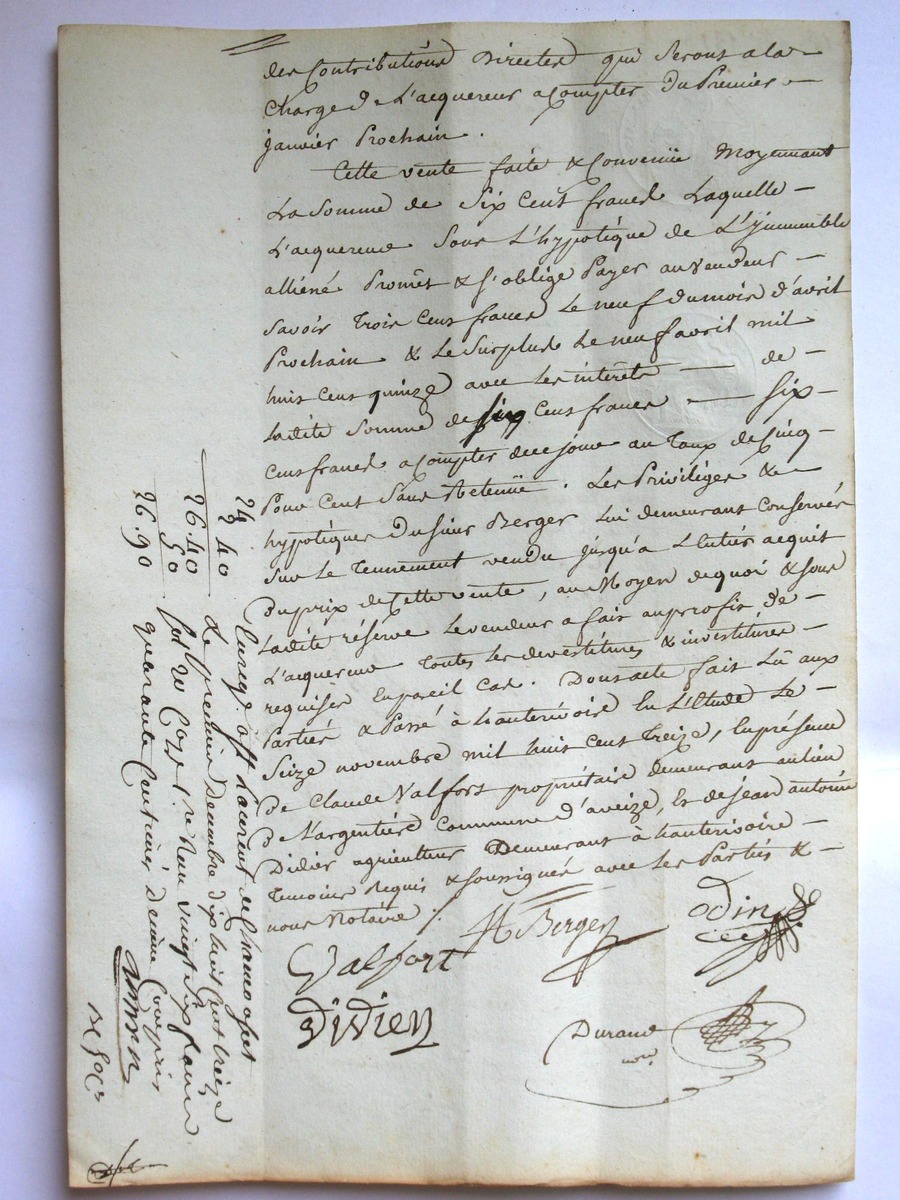 des Contributions Directes qui Seront a la
Charge de L'acquereur a Compter Du Premier
janvier Prochain.
Cette vente faite & Convenüe Moyennant
La Somme de Six Cent francs Laquelle
L'acquereur Sous L'hypotèque de L'jmmeuble
alliéné Promet & S'oblige Payer au Vendeur
Savoir Trois Cent francs Le neuf du mois d'avril
Prochain & Le Surplus Le neuf avril mil
huit Cent quinze avec Les intérêts de
Ladite Somme de Six Cent francs Six
Cent francs a Compter de ce jour au Taux de Cinq
Pour Cent Sans Retenüe. Les Privilèges &
hypotèques Du Sieur Berger Lui demeurant Conservés
Sur Le Tenement vendu jusqu'a L'Entier acquit
Du prix de Cette vente, au Moyen de quoi & Sous
Ladite réserve Le vendeur a fait au profit de
L'acquereur Toutes Les devestitures & investitures
requises En pareil Cas. Dont acte fait Lû aux
Parties & Passé à hauterivoire En L'Etude Le
Seize novembre mil huit Cent Treize, En présence
De Claude Valfort propriétaire demeurant au lieu
De L'argentière Commune d'aveize, Et de jean antoine
Didier agriculteur Demeurant à hauterivoire
Temoins Requis & Soussignés avec Les Parties &
nous Notaire.
Berger
Odin
Valfort
Didier
Durand
nore
24
2 40
26.40
50
26.90
Enreg. a St Laurent de Chamousset
Le premier Decembre dix huit Cent treize
fol. 20 Case 1. re Reçu vingt Six francs
quarante Centimes decime Compris